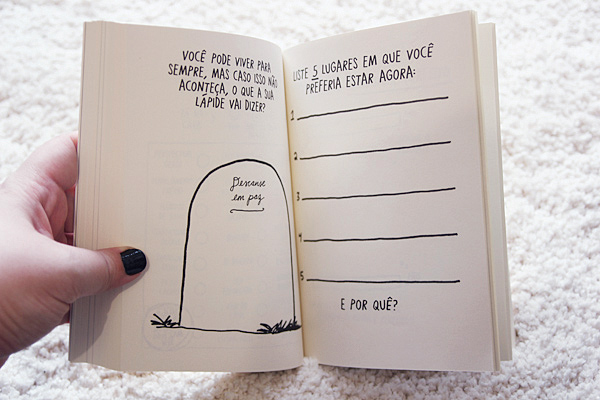 VOCÊ PODE VIVER PARA
SEMPRE, MAS CASO ISSO NÃO
ACONTEÇA, O QUE A SUA
LÁPIDE VAI DIZER?
Descanse
em paz
LISTE 5 LUGARES EM QUE VOCÊ
PREFERIA ESTAR AGORA:
1
2
3
4
5
E POR QUÊ?